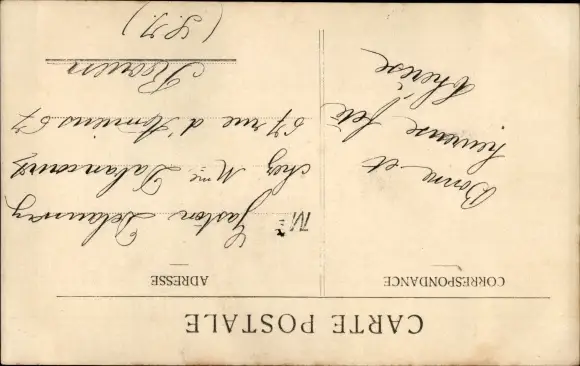 CARTE POSTALE
CORRESPONDANCE
Bonne et
heureuse fête
Thérèse
ADRESSE
Mr Gaston Delaunay
chez Mme Dalancourt
67 rue d'Amiens 67
Rouen
(S. I.)